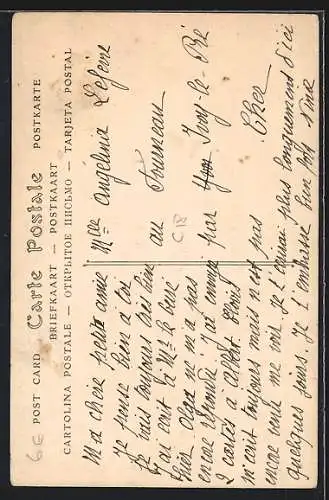 POST CARD — Carte Postale — POSTKARTE
BRIEFKAART — POSTKAART
CARTOLINA POSTALE — ОТКРЫТОЕ ПИСЬМО — TARJETA POSTAL
6E
Ma chère petite amie
Je pense bien à toi
Je vais toujours très bien
j'ai écrit à Mr le curé
hier Olga ne m'a pas
encore répondu J'ai envoyé
2 cartes à Albert
m'écrit toujours mais n'est pas
encore venue me voir Je t'écrirai plus longuement d'ici
quelques jours. Je t'embrasse bien fort Nini
Melle Angélina Lefèvre
au Fourneau
C18
par Ivoy-le-Pré
Cher